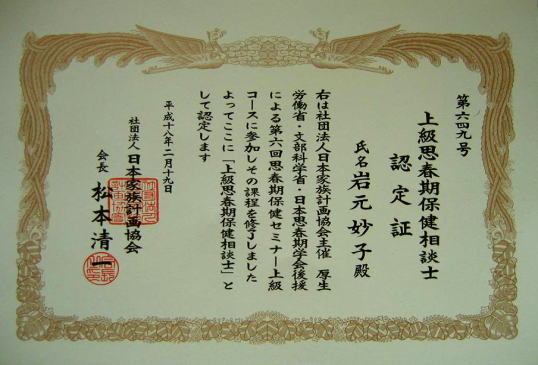 第六四九号
上級思春期保健相談士
認定証
氏名 岩元妙子殿
右は社団法人日本家族計画協会主催 厚生
労働省・文部科学省・日本思春期学会後援
による第六回思春期保健セミナー上級
コースに参加しその課程を修了しました
よってここに「上級思春期保健相談士」と
して認定します
平成十八年二月十九日
社団法人 日本家族計画協会
会長 松本清一